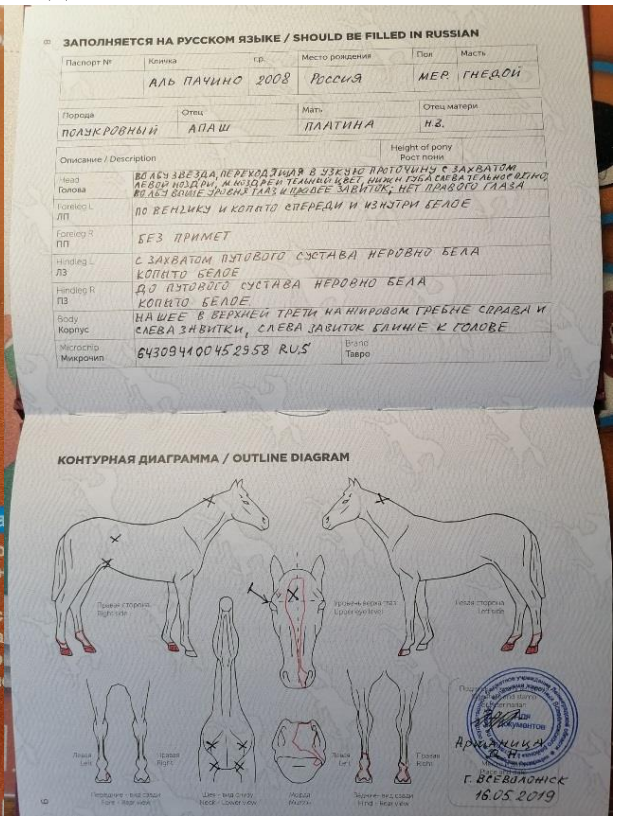 8
ЗАПОЛНЯЕТСЯ НА РУССКОМ ЯЗЫКЕ / SHOULD BE FILLED IN RUSSIAN
Паспорт № Кличка г.р. Место рождения Пол Масть
АЛЬ ПАЧИНО 2008 РОССИЯ МЕР. ГНЕДОЙ
Порода Отец Мать Отец матери
ПОЛУКРОВНЫЙ АПАШ ПЛАТИНА Н.В.
Описание / Description Height of pony
Рост пони
Head ВО ЛБУ ЗВЕЗДА, ПЕРЕХОДЯЩАЯ В УЗКУЮ ПРОТОЧИНУ С ЗАХВАТОМ
Голова ЛЕВОЙ НОЗДРИ, М. НОЗДРЕЙ ТЕЛЬНЫЙ ЦВЕТ, НИЖН ГУБА СЛЕВА
ВО ЛБУ ВЫШЕ УРОВНЯ ГЛАЗ И ПРАВЕЕ ЗАВИТОК; НЕТ ПРАВОГО ГЛАЗА
Foreleg L
ЛП ПО ВЕНЧИКУ И КОПЫТО СПЕРЕДИ И ИЗНУТРИ БЕЛОЕ
Foreleg R
ПП БЕЗ ПРИМЕТ
Hindleg L С ЗАХВАТОМ ПУТОВОГО СУСТАВА НЕРОВНО БЕЛА
ЛЗ КОПЫТО БЕЛОЕ
Hindleg R ДО ПУТОВОГО СУСТАВА НЕРОВНО БЕЛА
ПЗ КОПЫТО БЕЛОЕ
Body НА ШЕЕ В ВЕРХНЕЙ ТРЕТИ НА ЖИРОВОМ ГРЕБНЕ СПРАВА И
Корпус СЛЕВА ЗАВИТКИ, СЛЕВА ЗАВИТОК БЛИЖЕ К ГОЛОВЕ
Microchip Brand
Микрочип 643094100452958 RUS Тавро
КОНТУРНАЯ ДИАГРАММА / OUTLINE DIAGRAM
Правая сторона
Right side
Уровень верха глаз
Upper eye level
Левая сторона
Left side
Левая Правая Левая Правая
Left Right Left Right
Передние - вид сзади Шея - вид снизу Морда Задние - вид сзади
Fore - Rear view Neck - Lower view Muzzle Hind - Rear view
ДЛЯ
ДОКУМЕНТОВ
Г. ВСЕВОЛОЖСК
16.05.2019
9